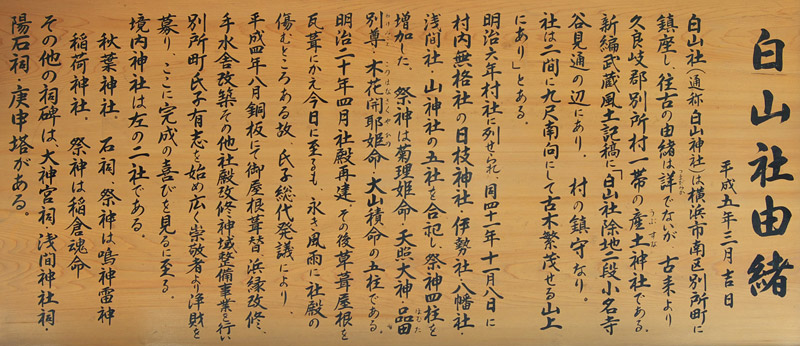 白山社由緒
平成五年三月吉日
白山社(通称白山神社)は横浜市南区別所町に
鎮座し、往古の由緒は詳でないが 古来より
久良岐郡別所村一帯の産土神社である。
うぶすな
新編武蔵風土記稿に「白山社除地二段小名寺
谷見通の辺にあり、 村の鎮守なり。
社は二間に九尺南向にして古木繁茂せる山上
にあり」とある。
明治六年村社に列せられ、同四十一年十一月八日に
村内無格社の日枝神社・伊勢社・八幡社・
浅間社・山神社の五社を合祀し、祭神四柱を
増加した。祭神は菊理姫命・天照大神・品田
ほむた
別尊・木花開耶姫命・大山積命の五柱である。
明治二十年四月社殿再建、その後草葺屋根を
瓦葺にかえ今日に至るも、永き風雨に社殿の
傷むところある故 氏子総代発議により、
平成四年八月銅板にて御屋根葺替 浜縁改修、
手水舎改築その他社殿改修、神域整備事業を行い
別所町氏子有志を始め広く崇敬者より浄財を
募り、ここに完成の喜びを見るに至る。
境内神社は左の二社である。
秋葉神社。 石祠、祭神は鳴神雷神
稲荷神社。 祭神は稲倉魂命
その他の祠碑は、大神宮祠、浅間神社祠・
陽石祠、庚申塔がある。